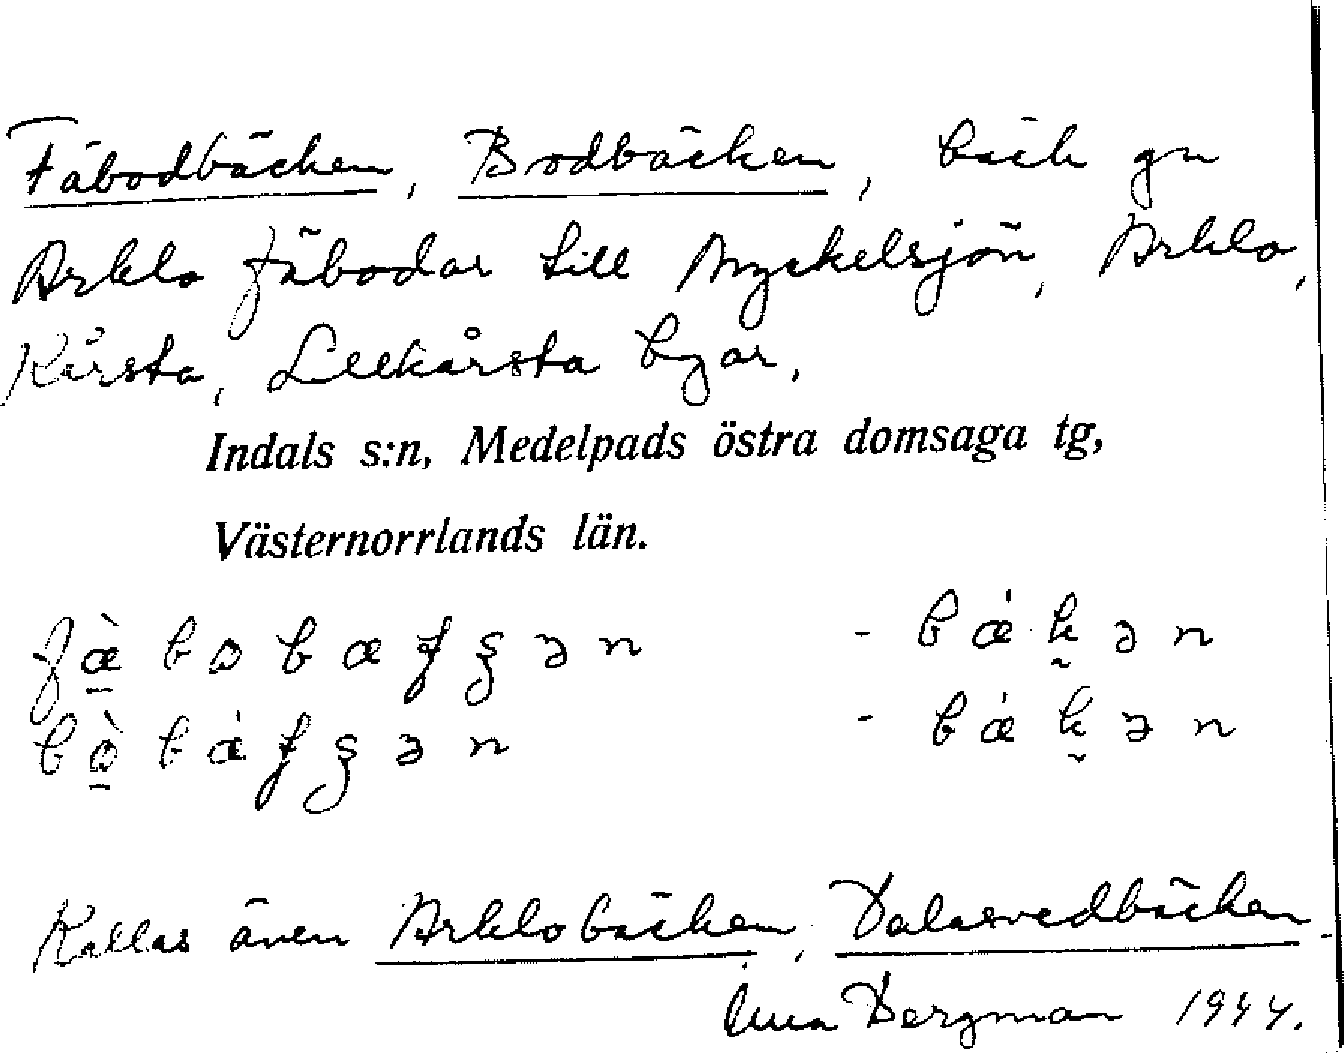 Fäbodbäcken, Bodbäcken, bäck gm
Arklo fäbodar till Nyckelsjön, Arklo,
Kårsta, Lillkårsta byar.
Indals s:n, Medelpads östra domsaga tg,
Västernorrlands län.
Kallas även Arklobäcken, Dalasvedbäcken
Bergman 1944.